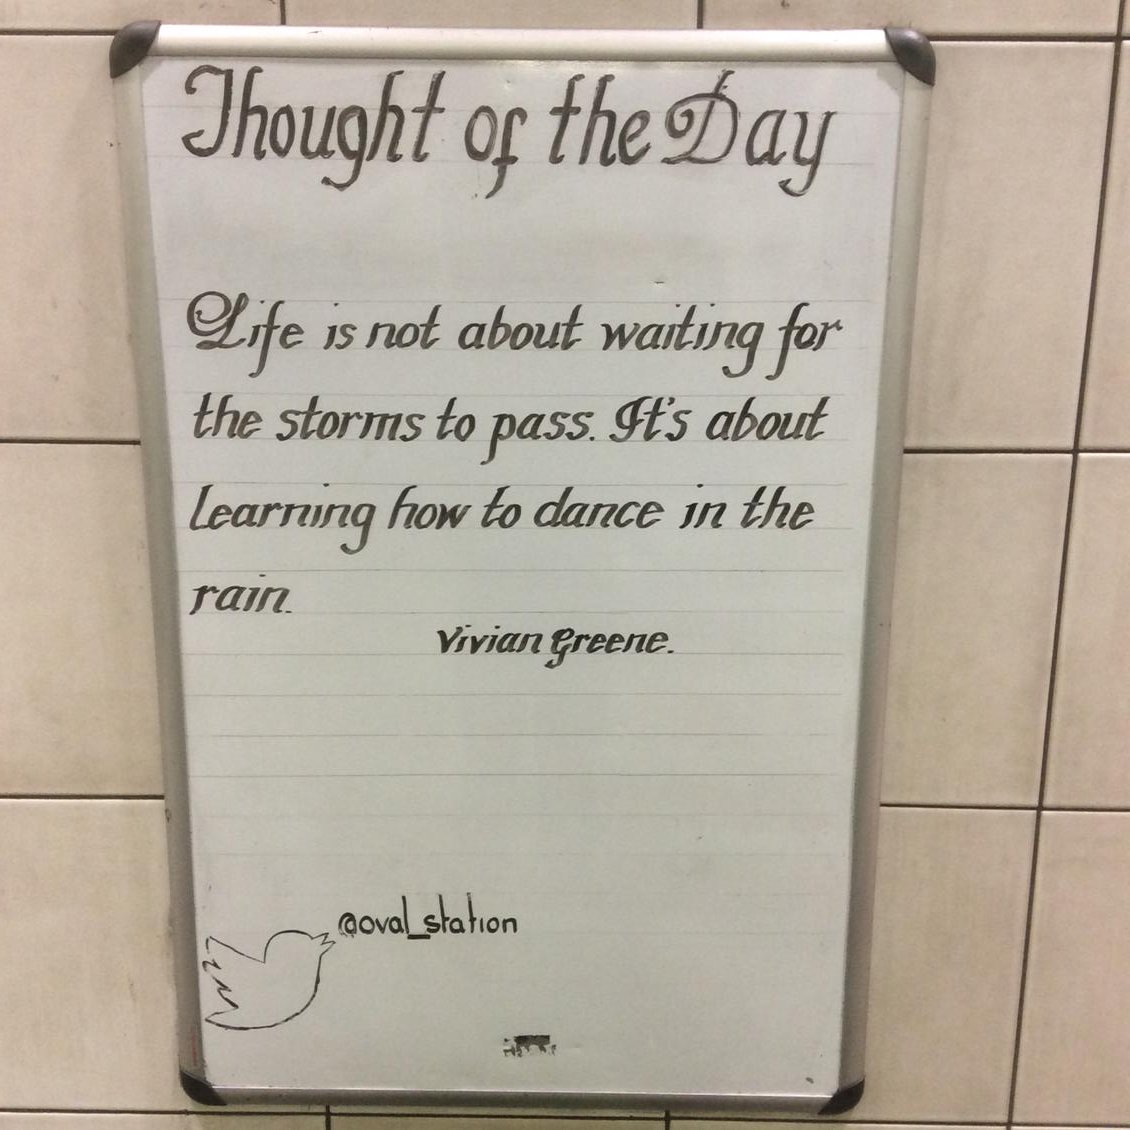 Thought of the Day
Life is not about waiting for
the storms to pass. It's about
learning how to dance in the
rain.
Vivian Greene.
@oval_station